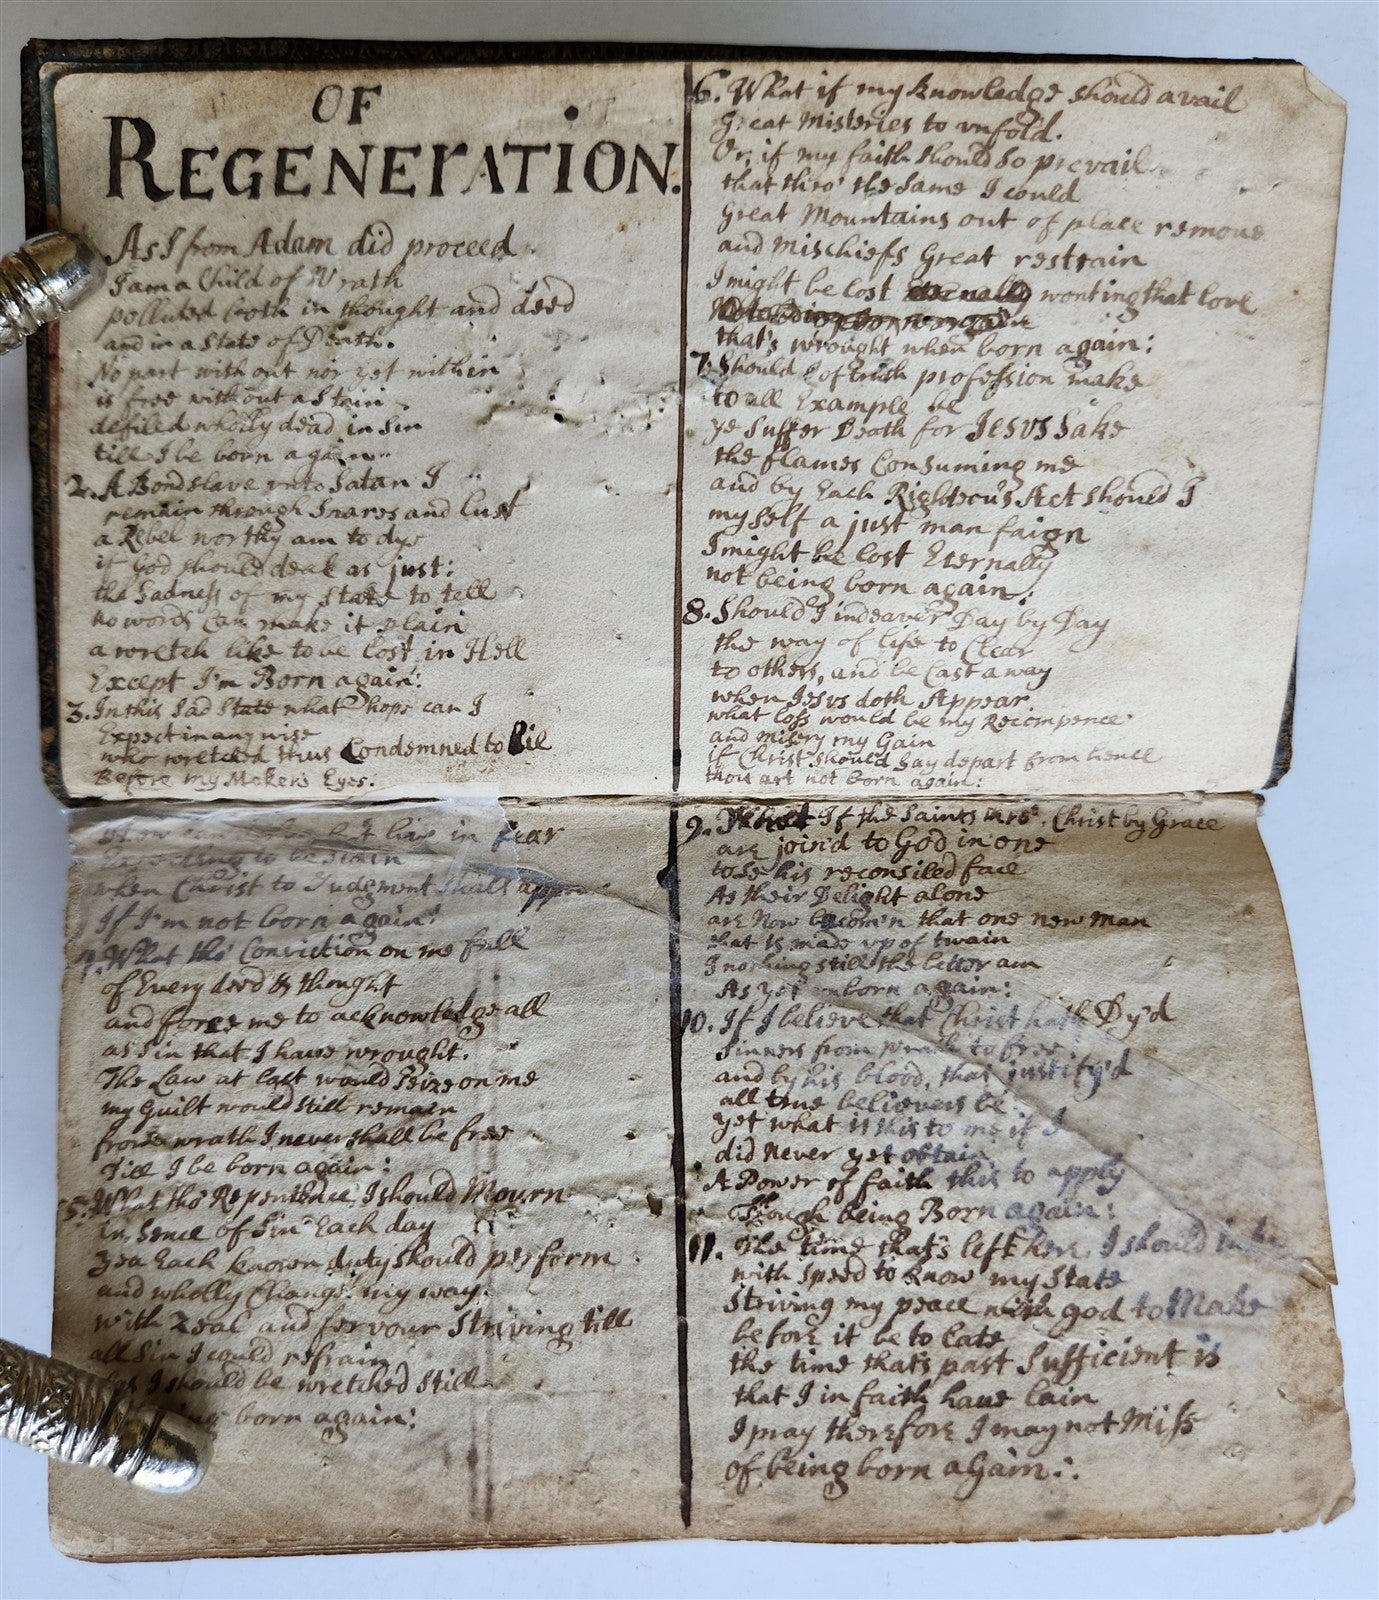 OF
REGENERATION.
As I from Adam did proceed
I am a Child of Wrath
polluted both in thought and deed
and in a State of Death.
No part without nor yet within
is free without a Stain
defiled wholly dead in Sin
till I be born again
2. A Bondslave unto Satan I
remain through Snares and Lust
a Rebel worthy am to dye
if God should deal as just:
the Sadness of my State to tell
no words Can make it plain
a wretch like to be Lost in Hell
Except I'm Born again:
3. In this Sad State what hope can I
Expect in any wise
who wretched thus Condemned to Lie
Before my Makers Eyes.
but live in fear
Expecting to be Slain
when Christ to Judgment Shall appear
If I'm not born again:
4. What tho' Conviction on me fall
of Every deed & thought
and force me to acknowledge all
as Sin that I have wrought.
The Law at last would Seize on me
my Guilt would Still remain
from wrath I never shall be free
Till I be born again:
5. What tho' Repentance I should Mourn
in Sence of Sin Each day
yea Each known duty should perform
and wholly Change my way.
with Zeal and fervour Striving till
all Sin I could refrain
I should be wretched Still
born again:
6. What if my knowledge should avail
Great Misteries to unfold.
Or, if my faith should So prevail
that thro' the Same I could
Great Mountains out of place remove
and Mischiefs Great restrain
I might be lost wonting that love
that's wrought when born again:
7. Should I of truth profession make
to all Example be
ye Suffer Death for JESUS Sake
the flames Consuming me
and by Each Righteous Act should I
my Self a just man faign
I might be lost Eternally
not being born again:
8. Should I indeaver Day by Day
the way of life to Clear
to others, and be Cast away
when Jesus doth Appear.
what loss would be my Recompence
and misery my Gain
if Christ should Say depart from hence
thou art not born again:
9. If the Saints thro' Christ by Grace
are join'd to God in one
to Se his reconsiled face
As their Delight alone
are Now becom'n that one new man
that is made up of twain
I nothing still the better am
As yet unborn again:
10. If I believe that Christ hath Dy'd
Sinners from wrath to free
and by his blood, that justify'd
all true believers be
yet what is this to me if I
did never yet obtain
A Power of faith this to apply
Through being Born again:
11. The time that's left here I should
with Speed to know my State
Striving my peace with god to Make
before it be to late
the time that's past Sufficient is
that I in faith have lain
I pray therefore I may not Miss
of being born again:.